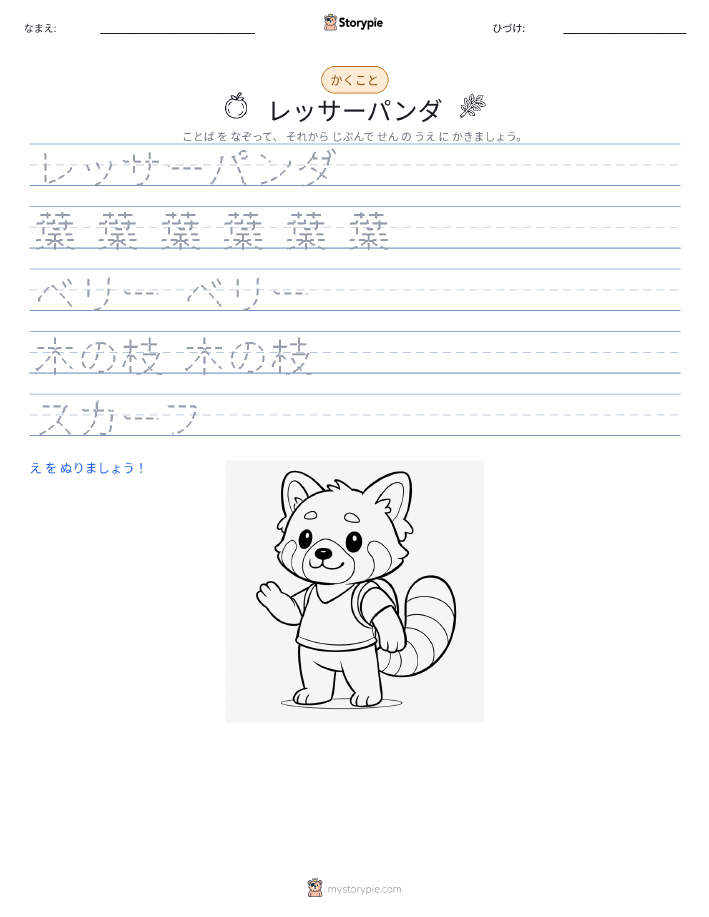 なまえ: Storypie ひづけ:
かくこと
レッサーパンダ
ことば を なぞって、 それから じぶんで せん の うえ に かきましょう。
レッサーパンダ
葉 葉 葉 葉 葉 葉
ベリー ベリー
木の枝 木の枝
スカーフ
え を ぬりましょう！
mystorypie.com